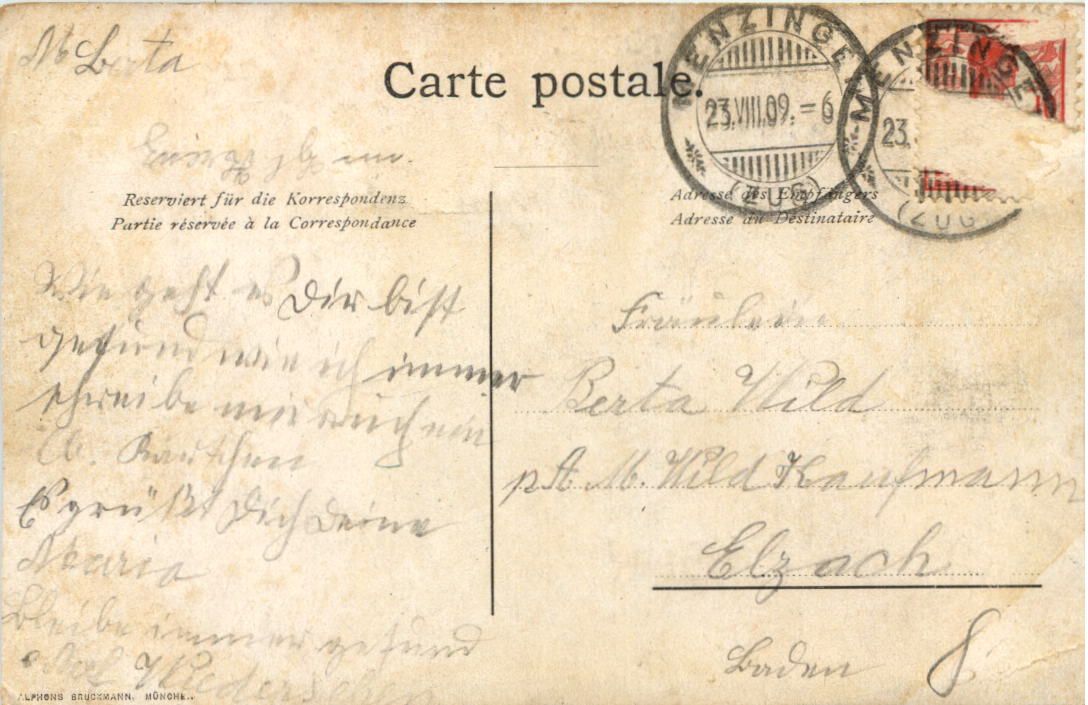 M. Berta
Carte postale.
MENZINGEN
23.VIII.09.-6
(ZUG)
MENZINGE
23.
(ZUG
Reserviert für die Korrespondenz
Partie réservée à la Correspondance
Adresse des Empfängers
Adresse du Destinataire
Wie geht es Dir bist
gesund wie ich immer
schreibe mir auch ein
Es grüßt Dich Deine
Maria
Bleibe immer gesund
Auf Wiedersehen
Fräulein
Berta Wild
p. A. M. Wild Kaufmann
Elzach
Baden
ALPHONS BRUCKMANN, MÜNCHE..